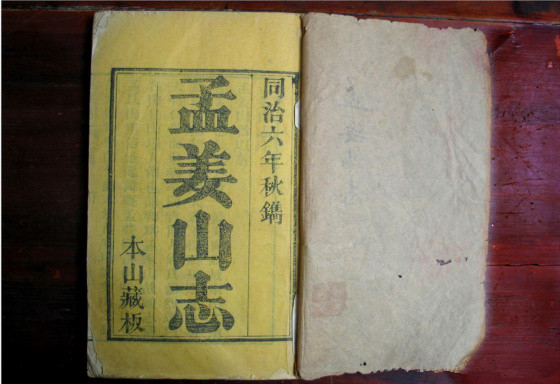 同治六年秋鐫
孟姜山志
本山藏板